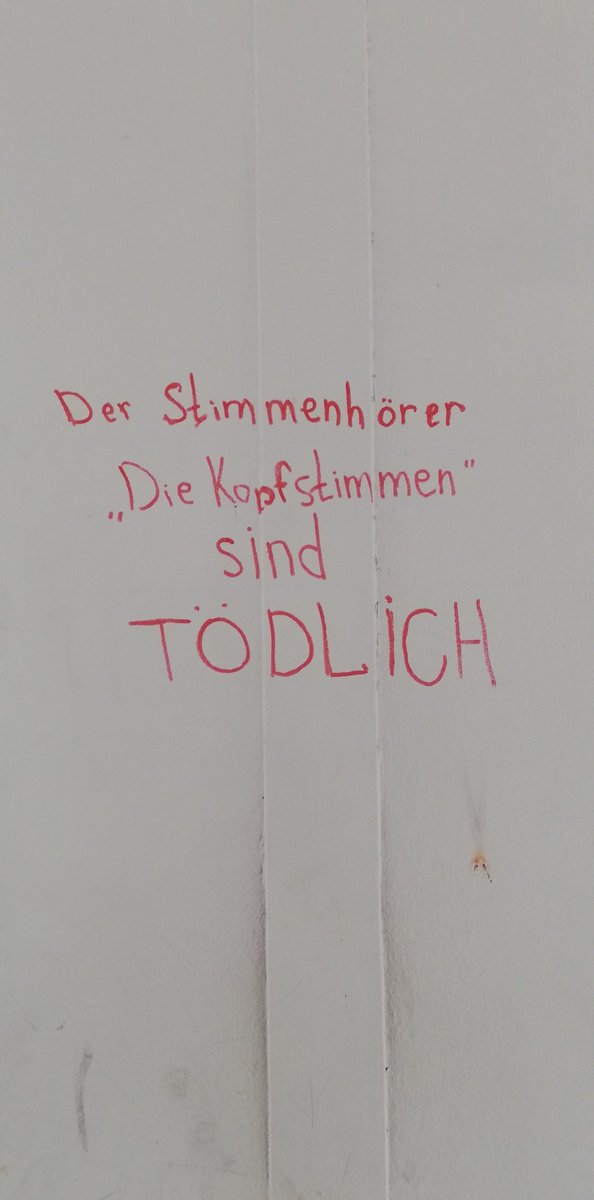 Der Stimmenhörer
„Die Kopfstimmen"
sind
TÖDLiCH